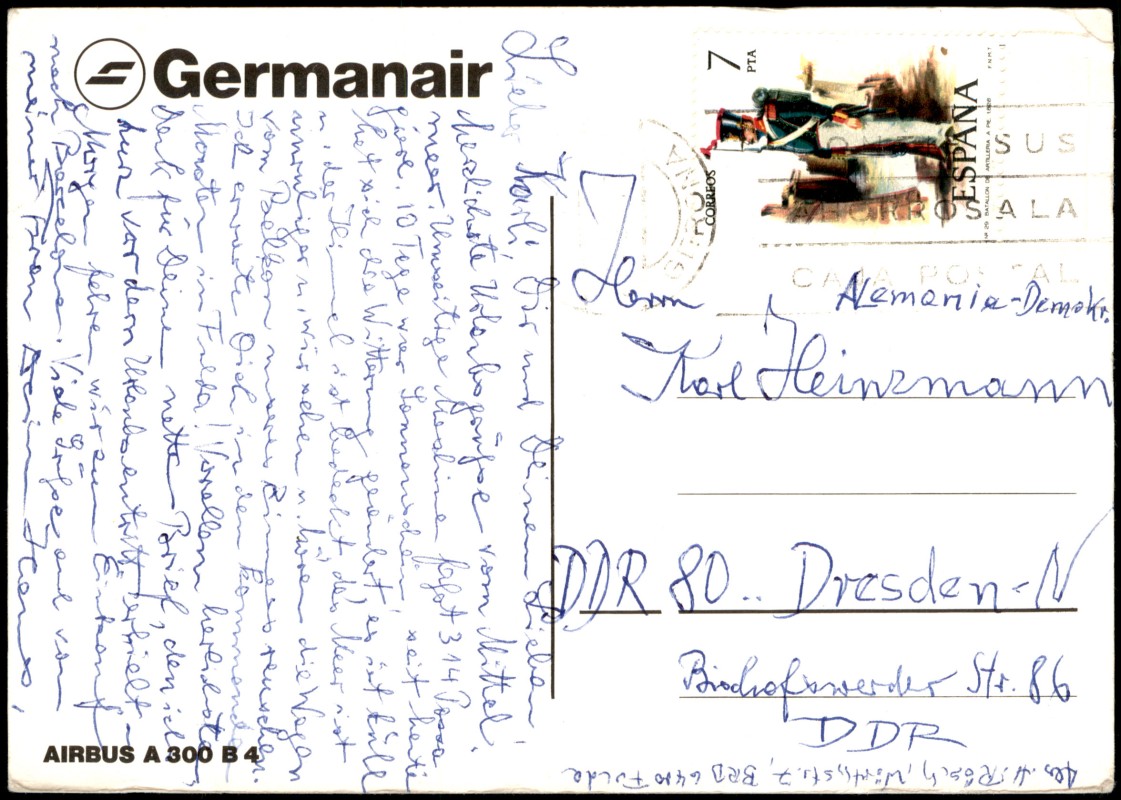 Germanair
Lieber Karli! Dir und Deinen Lieben
herzlichste Urlaubsgrüsse vom Mittel-
meer. Unsere Maschine fasst 314 Passa
giere. 10 Tage war Sonnenschein, seit heute
hat sich die Witterung geändert, es ist kühl
u. der Himmel ist bedeckt, das Meer ist
unruhiger u. wir sehen u. hören die Wogen
vom Balkon unseres Zimmers rauschen.
Ich erwarte Dich in den kommenden
Monaten in Fulda! Vor allem herzlichsten
Dank für Deinen netten Brief, den ich
kurz vor dem Urlaubsantritt erhielt.
Morgen fahren wir zum Einkauf
nach Barcelona. Viele Grüsse auch von
meiner Frau Dein Hans.
AIRBUS A 300 B 4
7 PTA
ESPAÑA
CORREOS
SUS
AHORROS A LA
CAJA POSTAL
Herrn
Alemania-Demokr.
Karl Heinzmann
DDR 80.. Dresden-N
Bischofswerder Str. 86
DDR
Abs. H. Rösch, str. 7, BRD 6400 Fulda